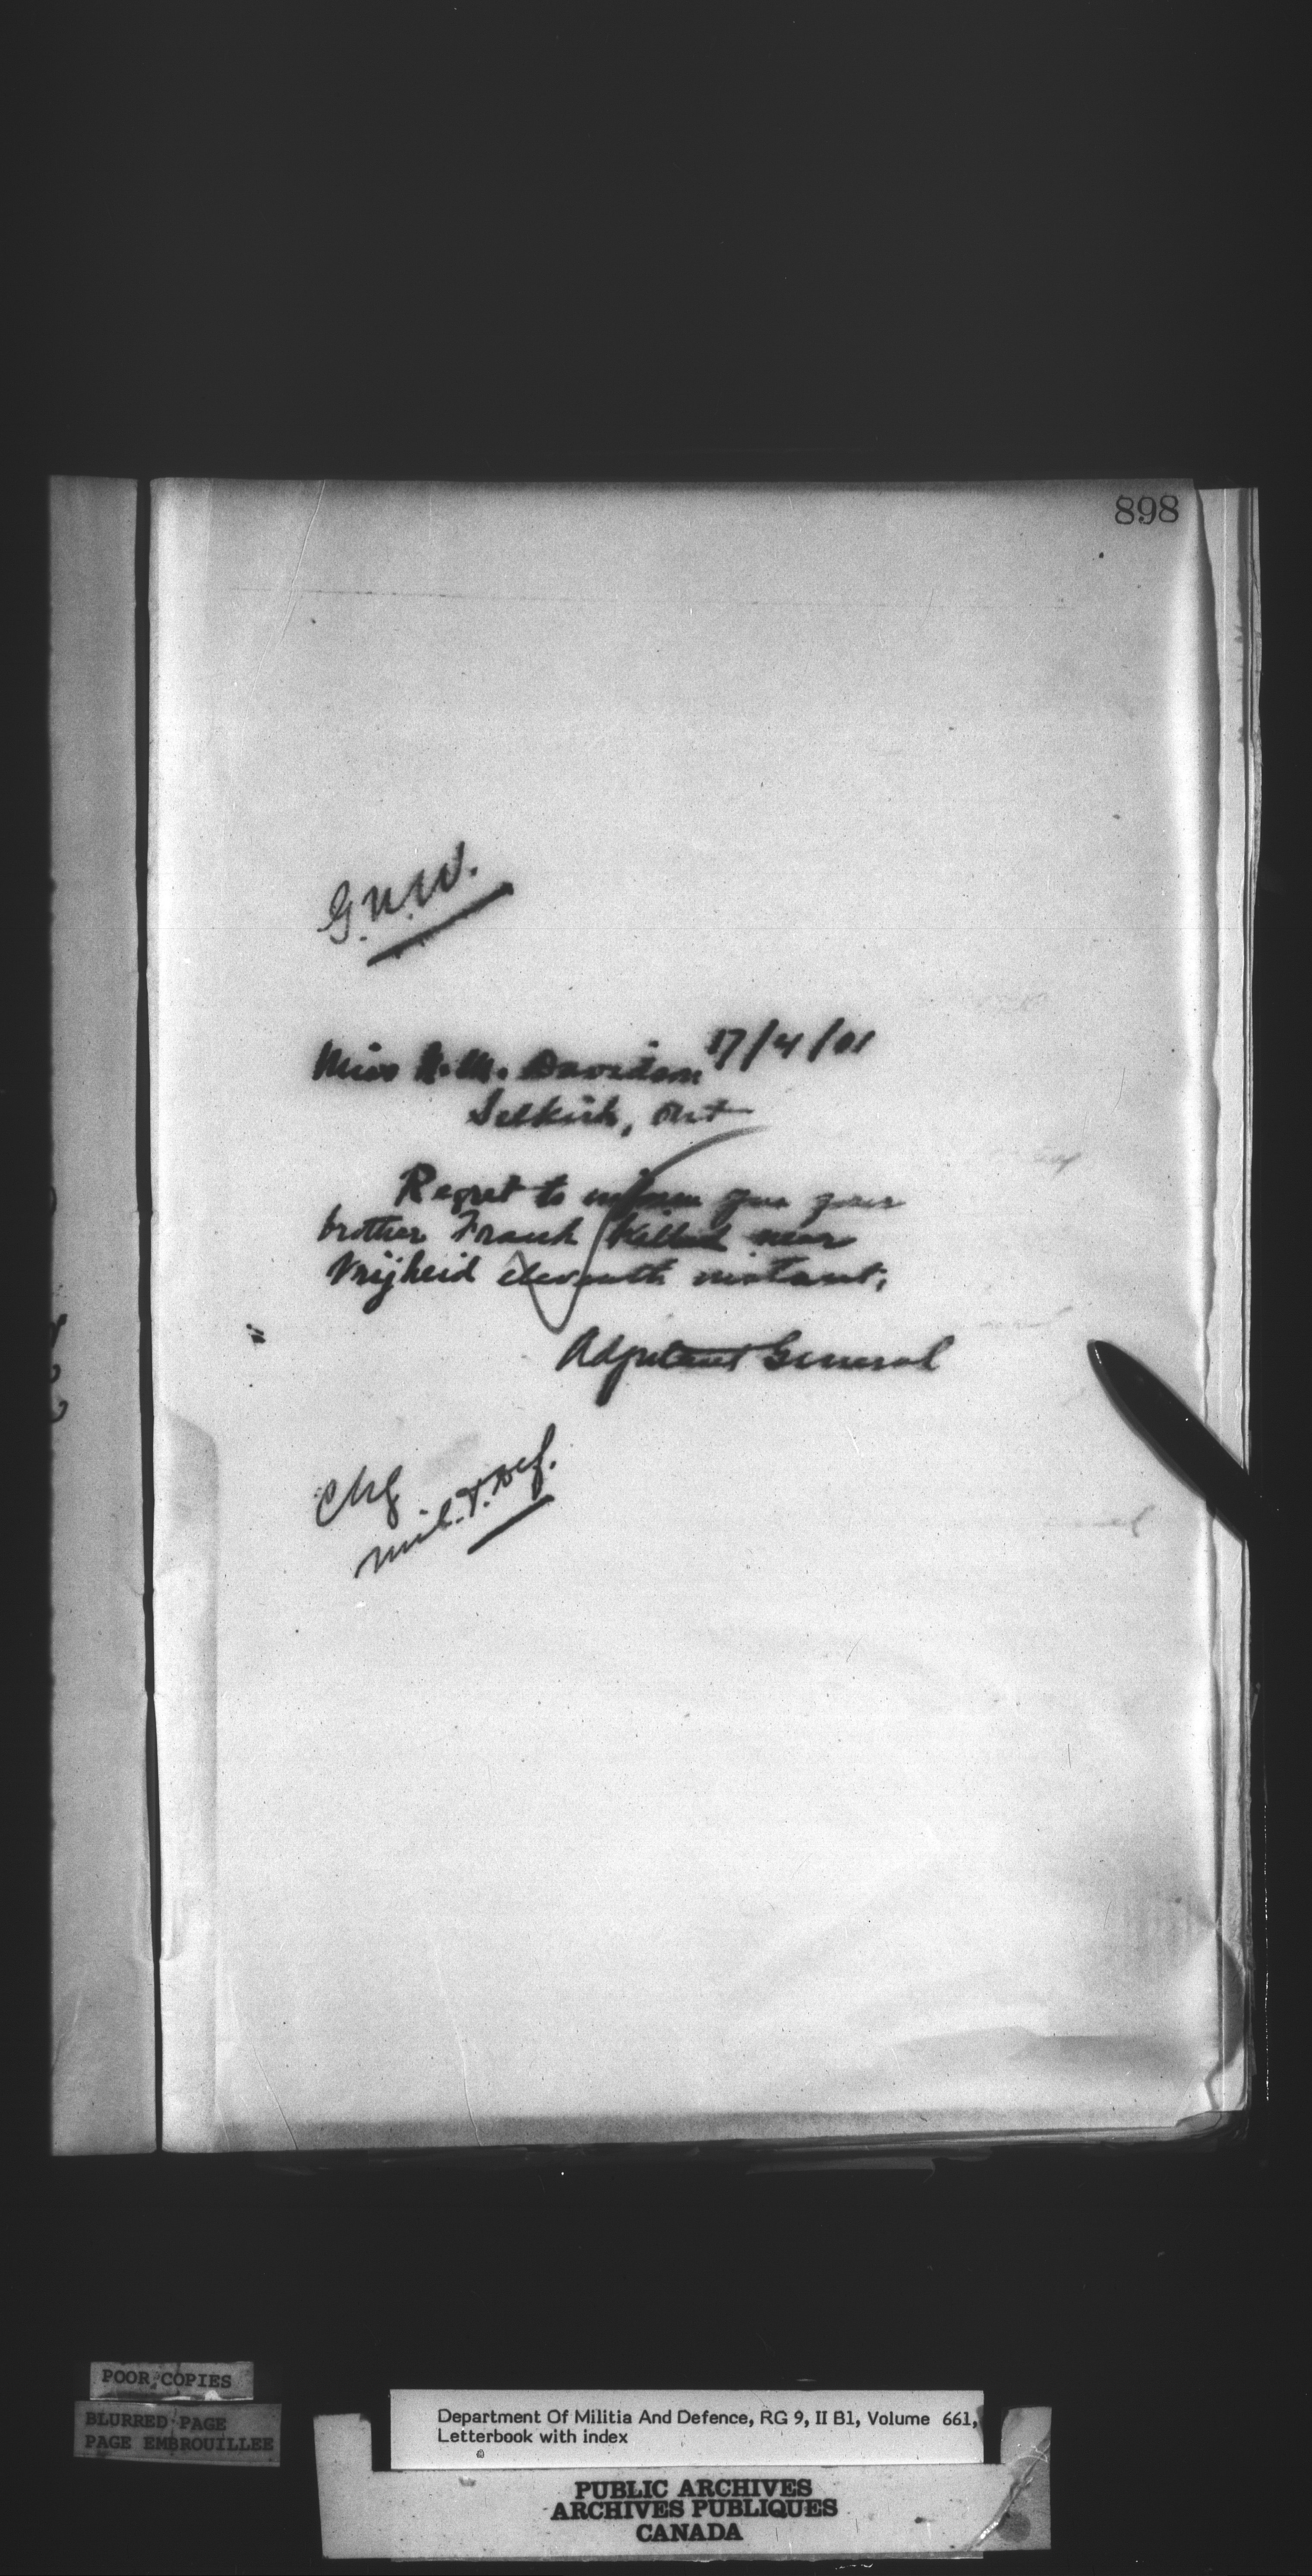 898
G.N.W.
17/4/01
Miss M. Davidson
Selkirk, Ont
Regret to inform you your
brother Frank killed near
Vrijheid eleventh instant;
Adjutant General
Chg
Mil. & Def.
POOR COPIES
BLURRED PAGE
PAGE EMBROUILLEE
Department Of Militia And Defence, RG 9, II B1, Volume 661,
Letterbook with index
PUBLIC ARCHIVES
ARCHIVES PUBLIQUES
CANADA